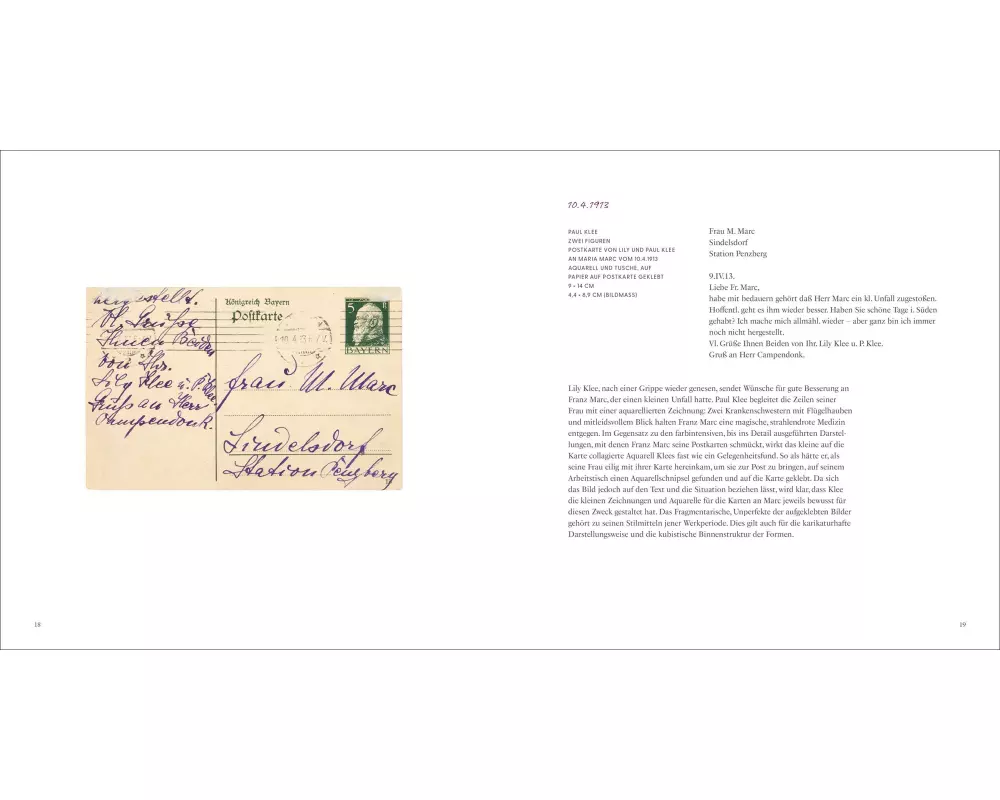 hergestellt.
Vl. Grüße
Ihnen Beiden
von Ihr.
Lily Klee u. P. Klee.
Gruß an Herr
Campendonk.
Königreich Bayern
Postkarte
5
BAYERN
Frau M. Marc
Sindelsdorf
Station Penzberg
18
10.4.1913
PAUL KLEE
ZWEI FIGUREN
POSTKARTE VON LILY UND PAUL KLEE
AN MARIA MARC VOM 10.4.1913
AQUARELL UND TUSCHE, AUF
PAPIER AUF POSTKARTE GEKLEBT
9 × 14 CM
4,4 × 8,9 CM (BILDMASS)
Frau M. Marc
Sindelsdorf
Station Penzberg
9.IV.13.
Liebe Fr. Marc,
habe mit bedauern gehört daß Herr Marc ein kl. Unfall zugestoßen.
Hoffentl. geht es ihm wieder besser. Haben Sie schöne Tage i. Süden
gehabt? Ich mache mich allmähl. wieder – aber ganz bin ich immer
noch nicht hergestellt.
Vl. Grüße Ihnen Beiden von Ihr. Lily Klee u. P. Klee.
Gruß an Herr Campendonk.
Lily Klee, nach einer Grippe wieder genesen, sendet Wünsche für gute Besserung an
Franz Marc, der einen kleinen Unfall hatte. Paul Klee begleitet die Zeilen seiner
Frau mit einer aquarellierten Zeichnung: Zwei Krankenschwestern mit Flügelhauben
und mitleidsvollem Blick halten Franz Marc eine magische, strahlendrote Medizin
entgegen. Im Gegensatz zu den farbintensiven, bis ins Detail ausgeführten Darstel-
lungen, mit denen Franz Marc seine Postkarten schmückt, wirkt das kleine auf die
Karte collagierte Aquarell Klees fast wie ein Gelegenheitsfund. So als hätte er, als
seine Frau eilig mit ihrer Karte hereinkam, um sie zur Post zu bringen, auf seinem
Arbeitstisch einen Aquarellschnipsel gefunden und auf die Karte geklebt. Da sich
das Bild jedoch auf den Text und die Situation beziehen lässt, wird klar, dass Klee
die kleinen Zeichnungen und Aquarelle für die Karten an Marc jeweils bewusst für
diesen Zweck gestaltet hat. Das Fragmentarische, Unperfekte der aufgeklebten Bilder
gehört zu seinen Stilmitteln jener Werkperiode. Dies gilt auch für die karikaturhafte
Darstellungsweise und die kubistische Binnenstruktur der Formen.
19